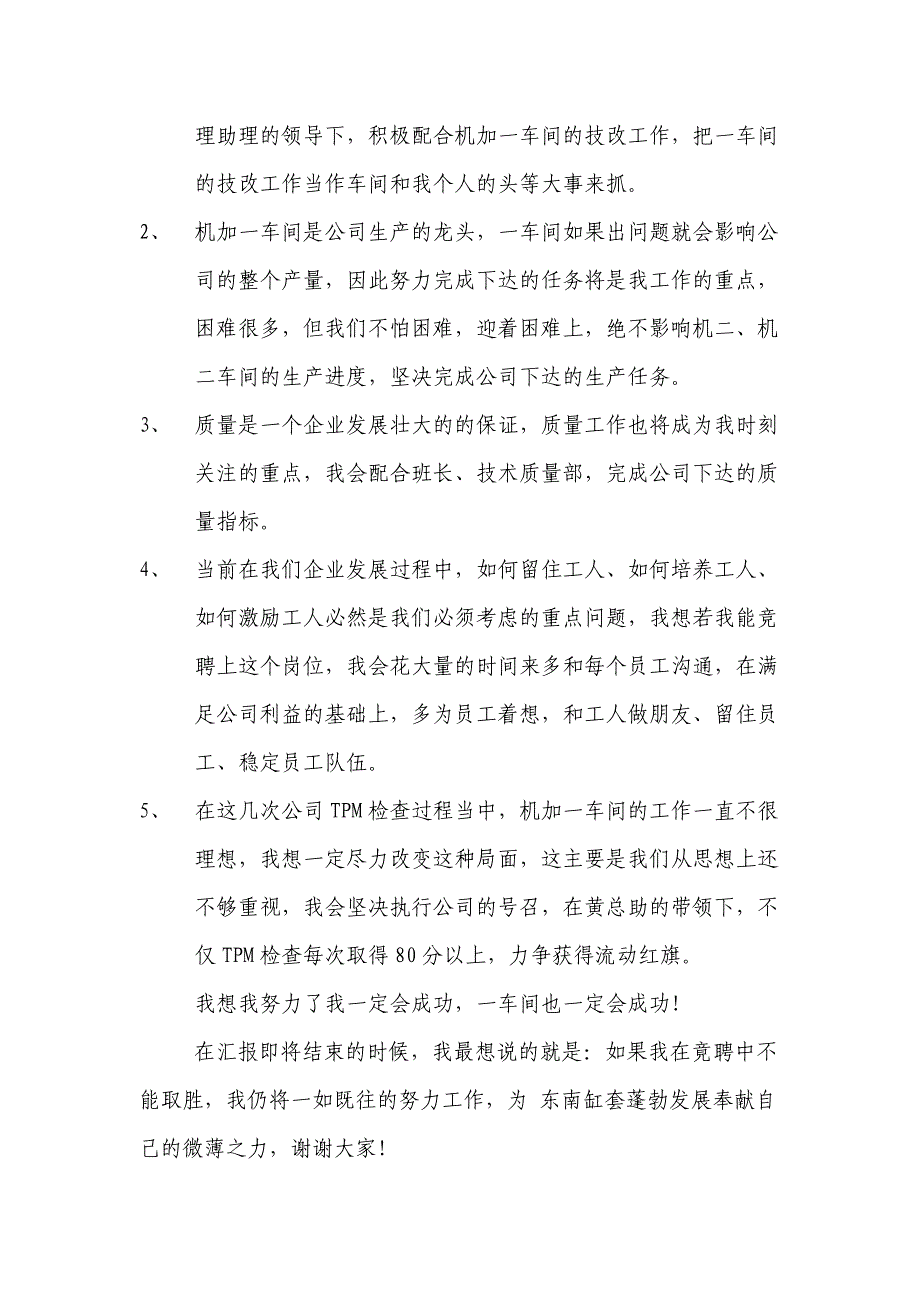 理助理的领导下，积极配合机加一车间的技改工作，把一车间
的技改工作当作车间和我个人的头等大事来抓。
2、 机加一车间是公司生产的龙头，一车间如果出问题就会影响公
司的整个产量，因此努力完成下达的任务将是我工作的重点，
困难很多，但我们不怕困难，迎着困难上，绝不影响机二、机
二车间的生产进度，坚决完成公司下达的生产任务。
3、 质量是一个企业发展壮大的的保证，质量工作也将成为我时刻
关注的重点，我会配合班长、技术质量部，完成公司下达的质
量指标。
4、 当前在我们企业发展过程中，如何留住工人、如何培养工人、
如何激励工人必然是我们必须考虑的重点问题，我想若我能竞
聘上这个岗位，我会花大量的时间来多和每个员工沟通，在满
足公司利益的基础上，多为员工着想，和工人做朋友、留住员
工、稳定员工队伍。
5、 在这几次公司 TPM 检查过程当中，机加一车间的工作一直不很
理想，我想一定尽力改变这种局面，这主要是我们从思想上还
不够重视，我会坚决执行公司的号召，在黄总助的带领下，不
仅 TPM 检查每次取得 80 分以上，力争获得流动红旗。
我想我努力了我一定会成功，一车间也一定会成功！
在汇报即将结束的时候，我最想说的就是：如果我在竞聘中不
能取胜，我仍将一如既往的努力工作，为 东南缸套蓬勃发展奉献自
己的微薄之力，谢谢大家！